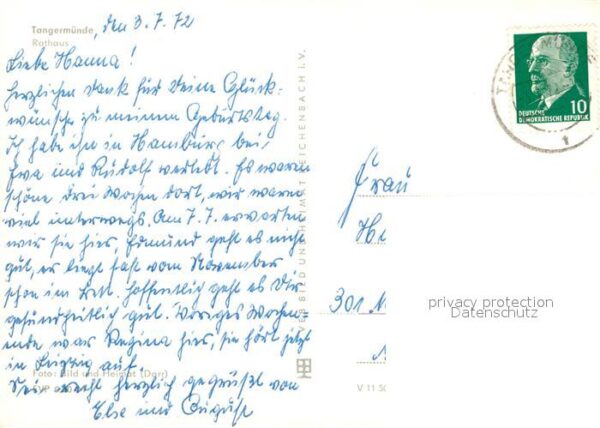 Tangermünde, den 3.7.72
Rathaus
Liebe Hanna!
Herzlichen Dank für Deine Glück-
wünsche zu meinem Geburtstag.
Ich habe ihn in Hamburg bei
Ewa und Rudolf verlebt. Es waren
schöne drei Wochen dort, wir waren
viel unterwegs. Am 7.7. erwarten
wir sie hier. Edmund geht es nicht
gut, er liegt fast vom November
schon im Bett. Hoffentlich geht es Dir
gesundheitlich gut. Voriges Wochen-
ende war Regina hier, sie hört jetzt
in Leipzig auf.
Foto: Bild und Heimat (Darr)
Sei recht herzlich gegrüßt von
Else und August
VEB BILD UND HEIMAT REICHENBACH i. V.
V 11 50
DEUTSCHE
DEMOKRATISCHE REPUBLIK
10
Frau
301 M
privacy protection
Datenschutz